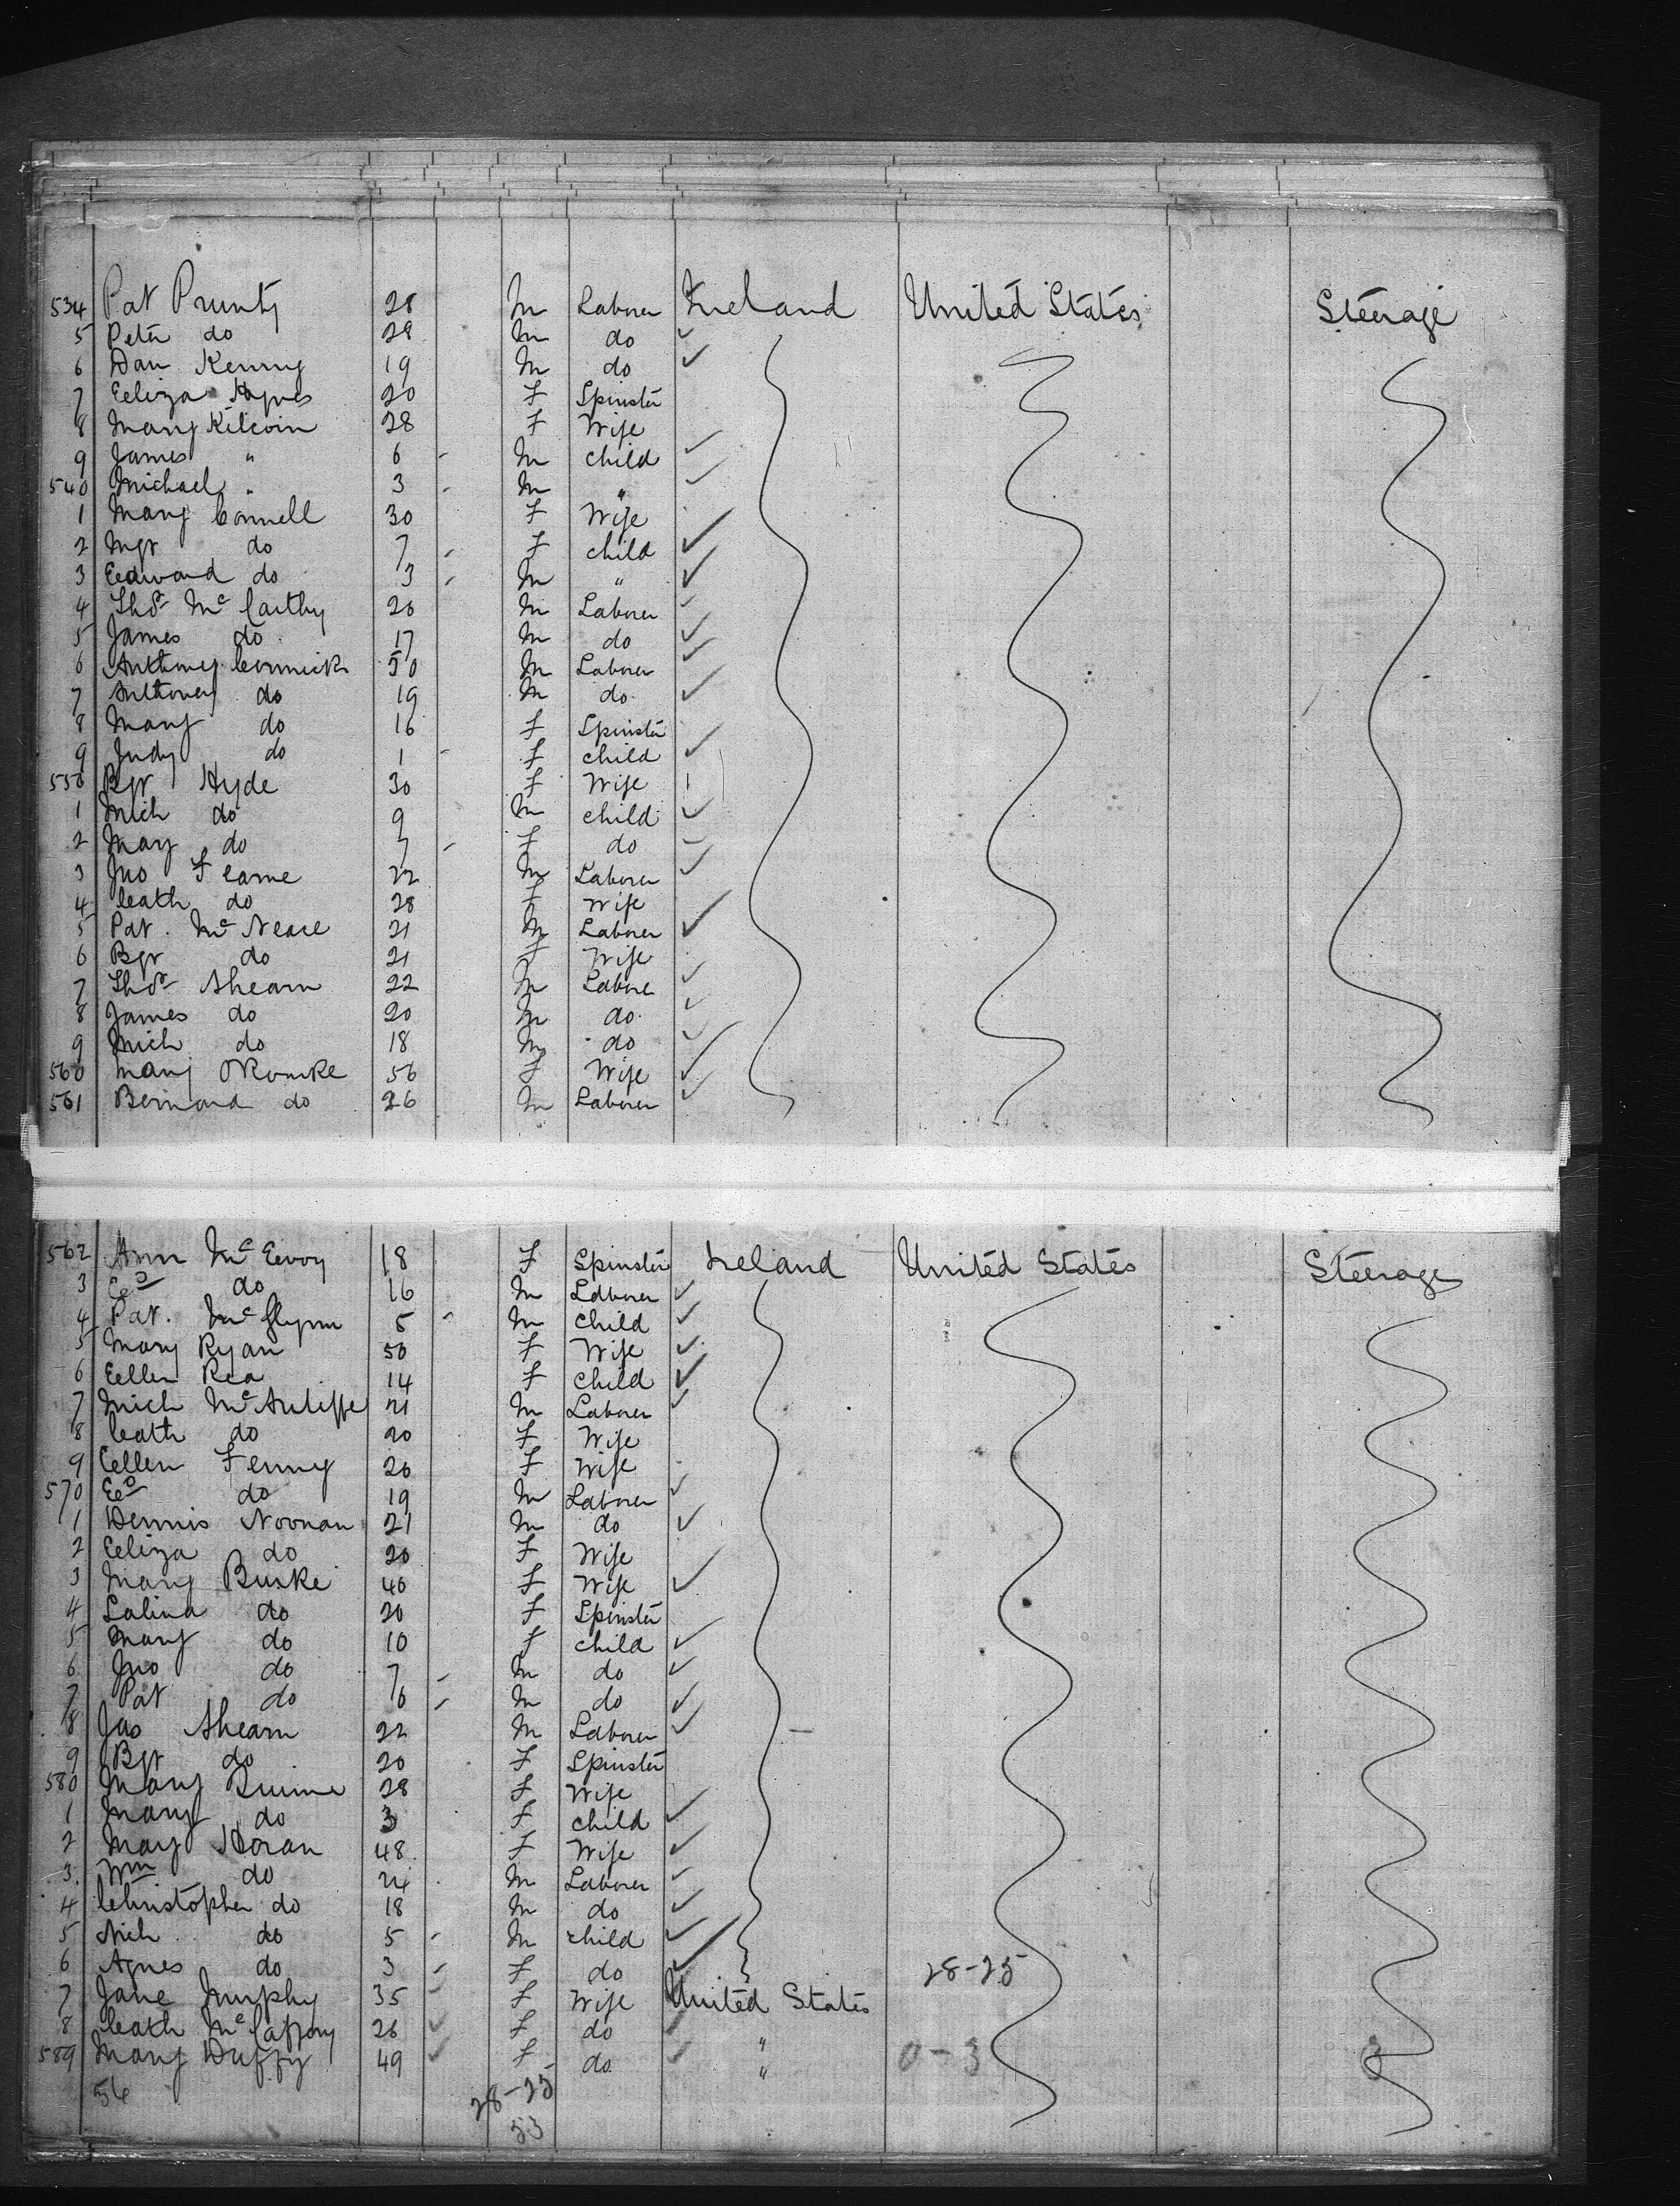 534 Pat Prunty 28 M Laborer Ireland United States Steerage
5 Peter do 28 M do
6 Dan Kenny 19 M do
7 Eeliza Hynes 20 F Spinster
8 Mary Kilcoin 28 F Wife
9 James " 6 M child
540 Michael " 3 M "
1 Mary Connell 30 F Wife
2 Mgt do 7 F child
3 Eedward do 3 M "
4 Thos McCarthy 20 M Laborer
5 James do 17 M do
6 Anthony Cormick 50 M Laborer
7 Anthony do 19 M do
8 Mary do 16 F Spinster
9 Judy do 1 F child
550 Bgt Hyde 30 F Wife
1 Mich do 9 M child
2 Mary do 7 F do
3 Jno 22 M Laborer
4 Cath do 28 F Wife
5 Pat. 21 M Laborer
6 Bgt do 21 F Wife
7 Thos Ahearn 22 M Labore
8 James do 20 M do
9 Mich do 18 M do
560 Mary ORourke 56 F Wife
561 Bernard do 26 M Laborer
562 Ann McEevoy 18 F Spinster Ireland United States Steerage
3 do 16 M Laborer
4 Pat. McGlynn 5 M Child
5 Mary Ryan 50 F Wife
6 Eellen Rea 14 F Child
7 Mich McAuliffe 21 M Laborer
8 Cath do 20 F Wife
9 Eellen Fenny 20 F Wife
570 do 19 M Laborer
1 Dennis Noonan 21 M do
2 Eeliza do 20 F Wife
3 Mary Burke 40 F Wife
4 Salina do 20 F Spinster
5 Mary do 10 F child
6 Jno do 7 M do
7 Pat do 6 M do
8 Jas Ahearn 22 M Laborer
9 Bgt do 20 F Spinster
580 Mary Quinne 28 F Wife
1 Mary do 3 F child
2 Mary Horan 48 F Wife
3 Wm do 24 M Laborer
4 Christopher do 18 M do
5 Mich do 5 M child
6 Agnes do 3 F do 28-25
7 Jane Murphy 35 F Wife United States
8 Cath McCaffery 26 F do "
589 Mary Duffy 49 F do " 0-3 0
56 28-25
53